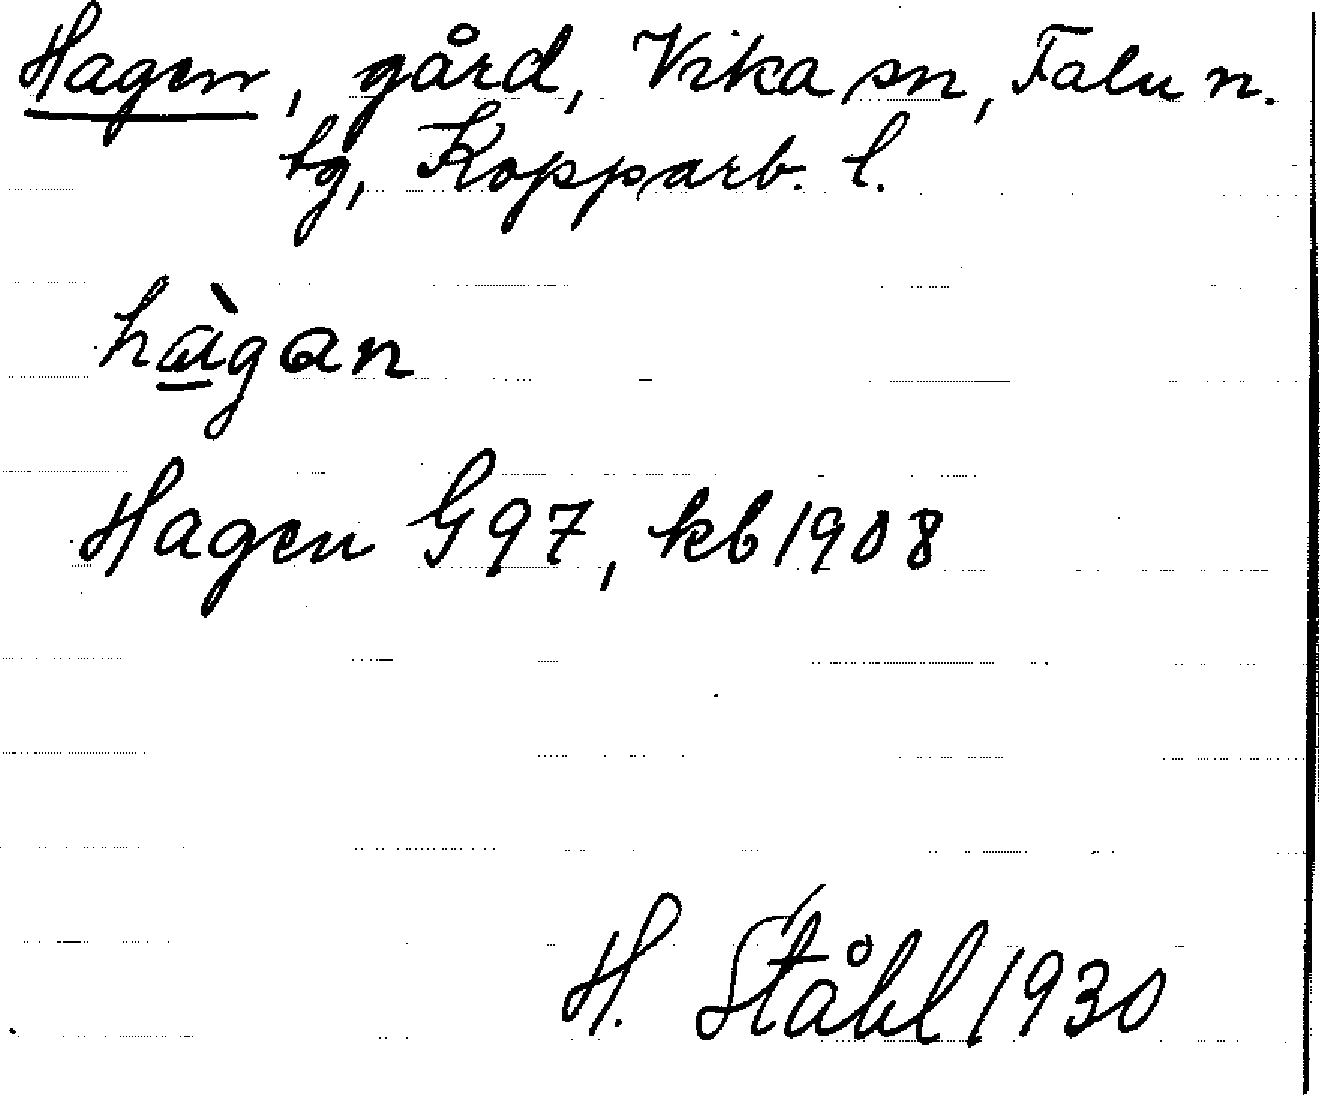 Hagen, gård, Vika sn, Falu n.
tg, Kopparb. l.
hàgan
Hagen G97, kb 1908
H. Ståhl 1930